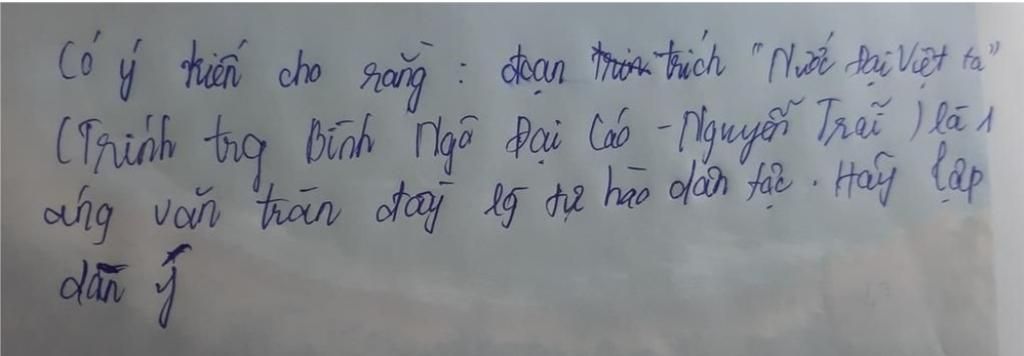 Có ý kiến cho rằng : đoạn trích "Nước Đại Việt ta"
(Trính trg Bình Ngô Đại Cáo - Nguyễn Trãi) là 1
áng văn tràn đầy lg tự hào dân tộc. Hãy lập
dần ý